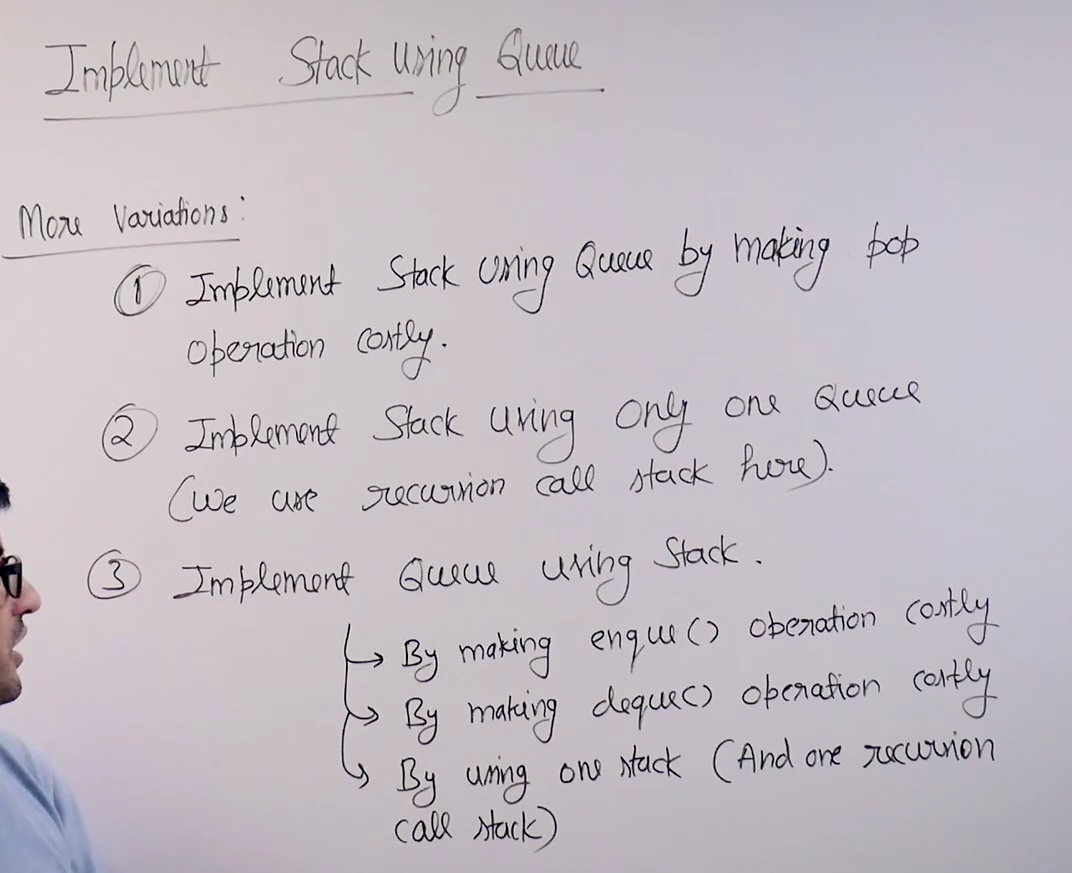 Implement Stack Using Queue
More Variations:
① Implement Stack Using Queue by making pop
operation costly.
② Implement Stack Using Only one Queue
(We use recursion call stack here).
③ Implement Queue using Stack.
↳ By making enque() operation costly
↳ By making deque() operation costly
↳ By using one stack (And one recursion
call stack)